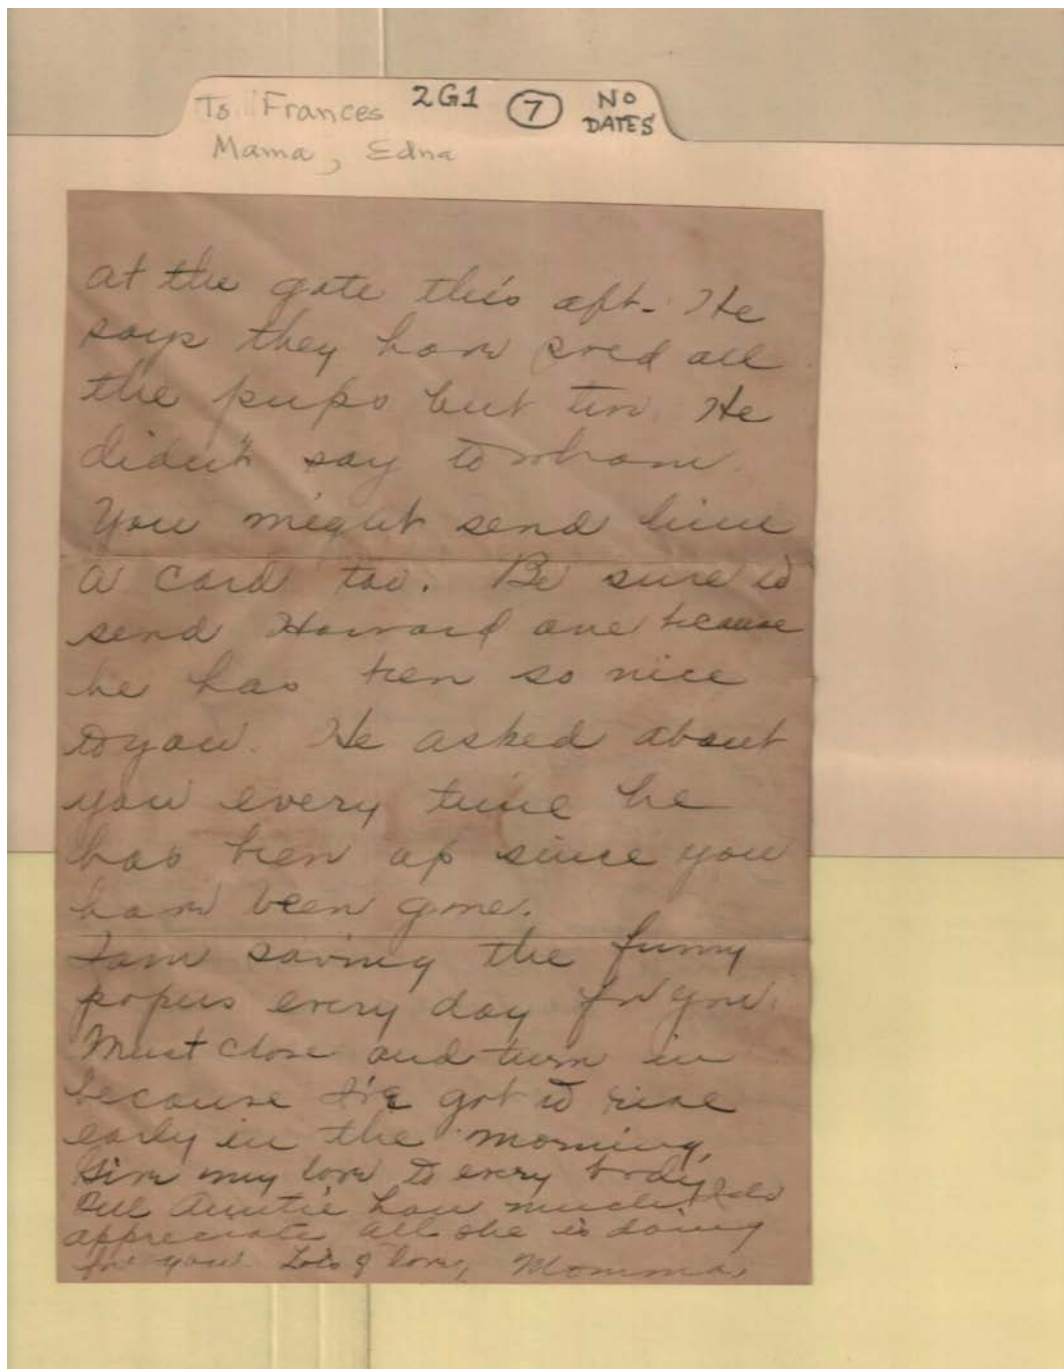 To Frances 2G1 7 NO DATES
Mama, Edna
at the gate this aft. He
says they have sold all
the pups but two. He
didn't say to whom.
You might send him
a card too. Be sure to
send Howard one because
he has been so nice
to you. He asked about
you every time he
has been up since you
have been gone.
I am saving the funny
papers every day for you.
Must close and turn in
because I've got to rise
early in the morning.
Give my love to every body
Tell Auntie how much
appreciate all she is doing
for you. Lots of love, Momma.